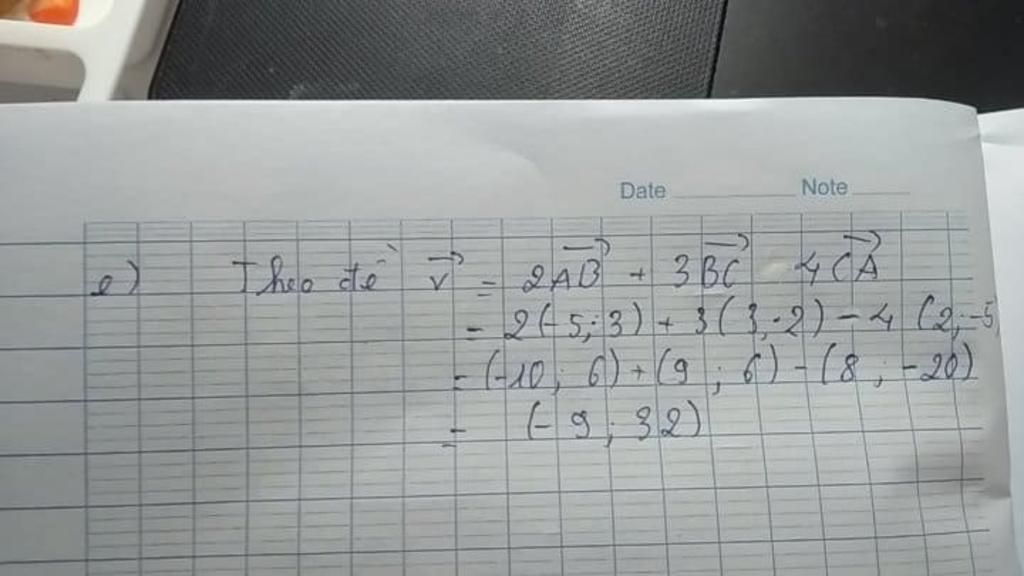 Date Note
e) Theo đề v⃗ = 2AB⃗ + 3BC⃗ 4CA⃗
= 2(-5; 3) + 3(3; 2) - 4 (2; -5)
= (-10; 6) + (9; 6) - (8; -20)
= (-9; 32)